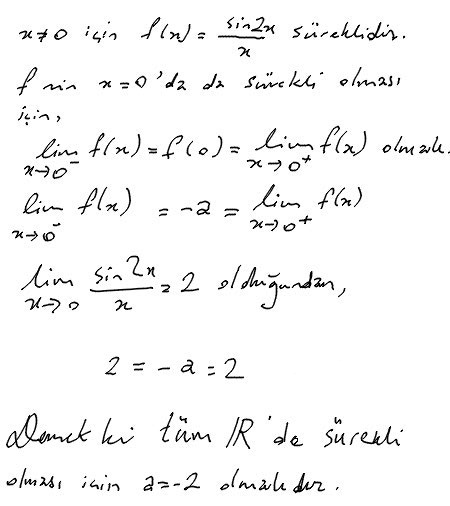 x≠0 için f(x) = sin2x/x süreklidir.
f nin x=0'da da sürekli olması
için,
lim x→0⁻ f(x) = f(0) = lim x→0⁺ f(x) olmalı.
lim x→0⁻ f(x) = -a = lim x→0⁺ f(x)
lim x→0 sin2x/x = 2 olduğundan,
2 = -a = 2
Demek ki tüm ℝ'de sürekli
olması için a=-2 olmalıdır.